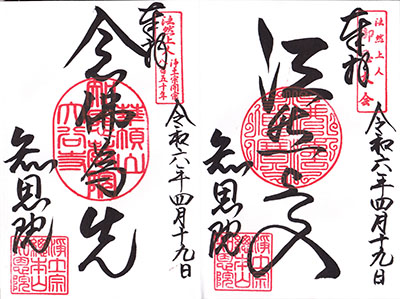 奉拝
法然上人
浄土宗開宗
八百五十年
念佛為先
華頂山
大谷寺
令和六年四月十九日
知恩院
浄土宗
総本山
知恩院
奉拝
法然上人
法然上人
令和六年四月十九日
知恩院
浄土宗
総本山
知恩院